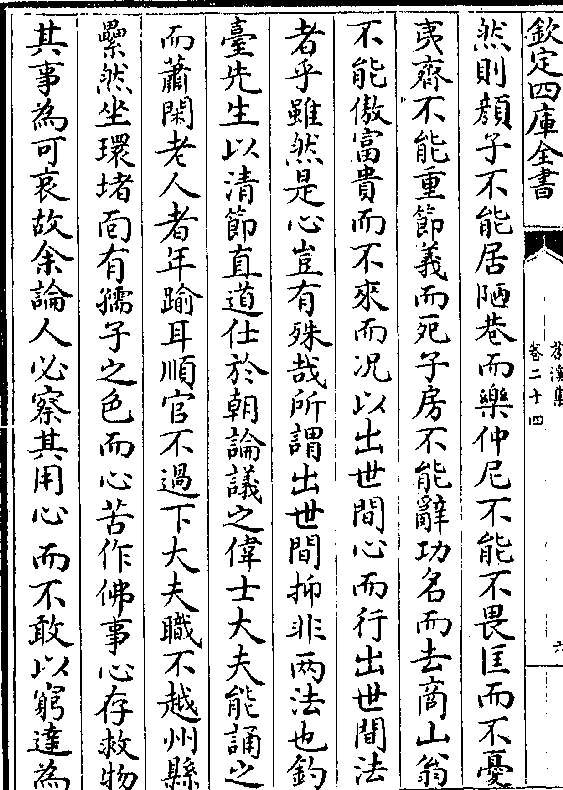 欽定四庫全書
卷二十四
六
然則顔子不能居陋巷而樂仲尼不能不畏匡而不憂
夷齋不能重節義而死子房不能辭功名而去商山翁
不能傲富貴而不來而况以出世間心而行出世間法
者乎雖然是心豈有殊哉所謂出世間抑非两法也釣
臺先生以清節直道仕於朝論議之偉士大夫能誦之
而蕭閑老人者年踰耳順官不過下大夫職不越州縣
纍然坐環堵面有孺子之色而心苦作佛事心存救物
其事為可哀故余論人必察其用心而不敢以窮達為